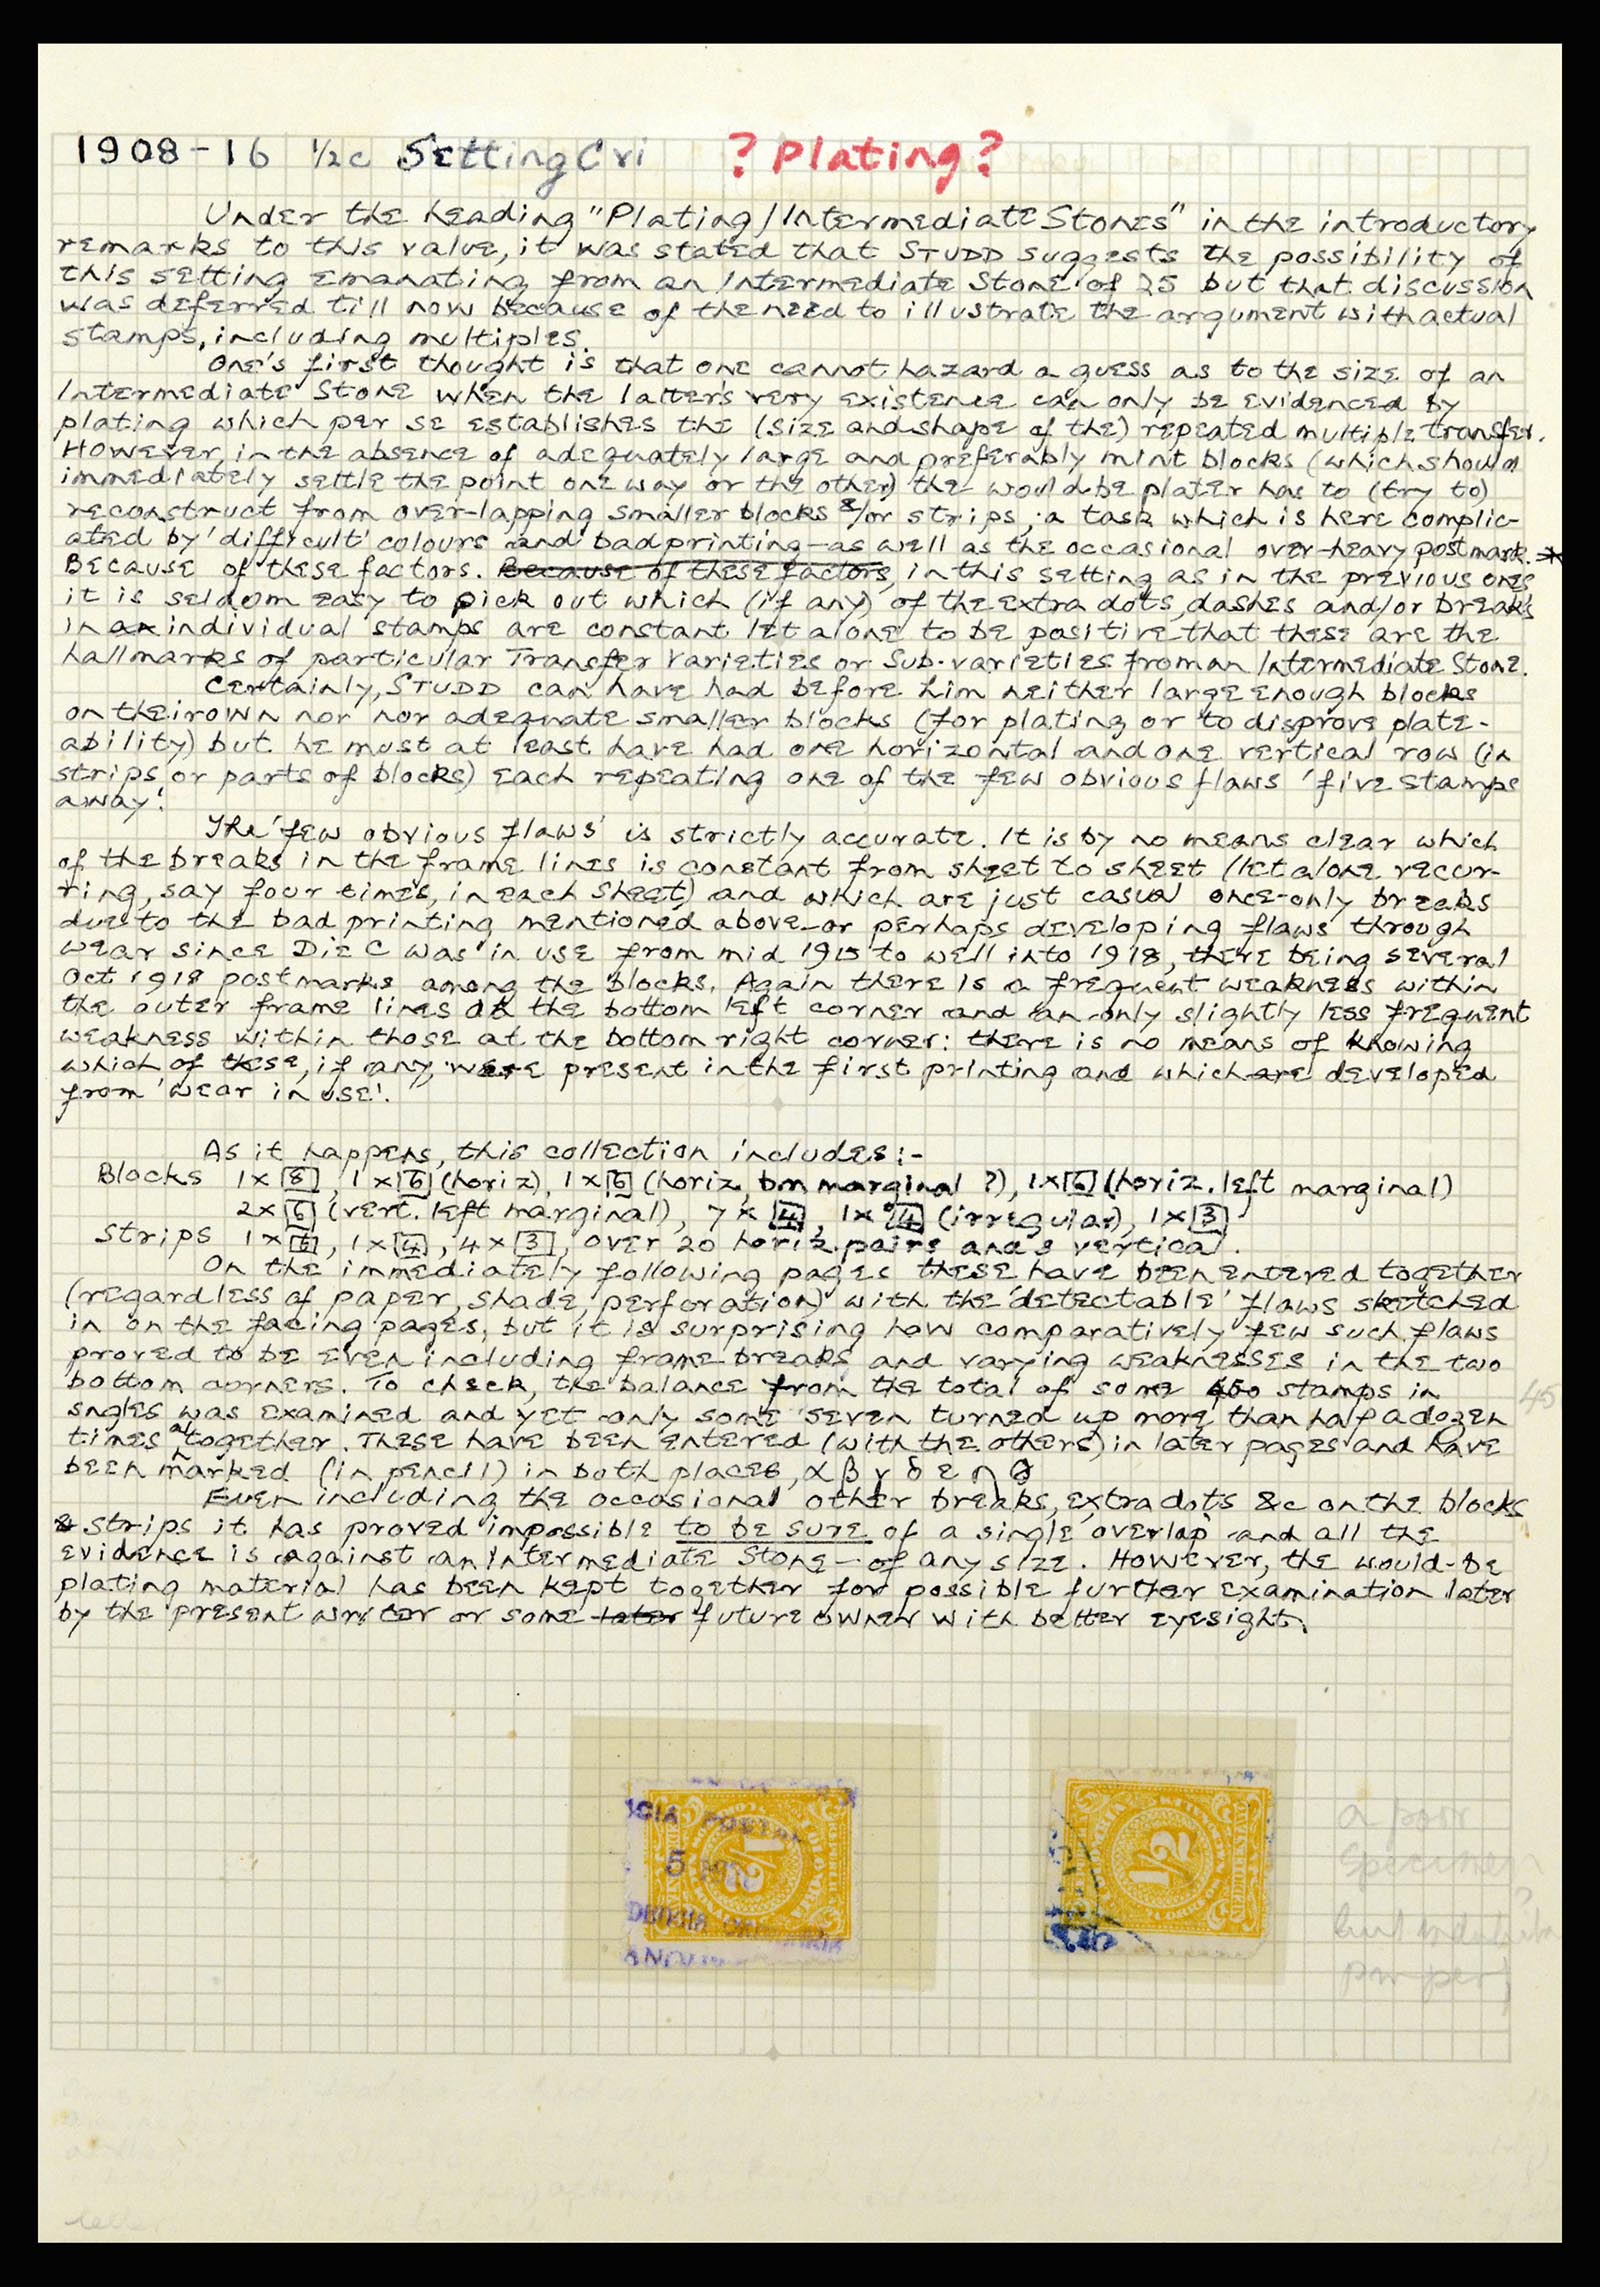 1908-16 ½c Setting Cvi ? Plating ?
Under the heading "Plating/Intermediate Stones" in the introductory
remarks to this value, it was stated that STUDD suggests the possibility of
this setting emanating from an Intermediate Stone of 25 but that discussion
was deferred till now because of the need to illustrate the argument with actual
stamps, including multiples.
One's first thought is that one cannot hazard a guess as to the size of an
Intermediate Stone when the latter's very existence can only be evidenced by
plating which per se establishes the (size and shape of the) repeated multiple transfer.
However, in the absence of adequately large and preferably mint blocks (which should
immediately settle the point one way or the other) the would-be plater has to (try to)
reconstruct from over-lapping smaller blocks &/or strips, a task which is here complic-
ated by 'difficult' colours and bad printing - as well as the occasional over-heavy postmark.
Because of these factors. Because of these factors, in this setting as in the previous ones,
it is seldom easy to pick out which (if any) of the extra dots, dashes and/or breaks
in an individual stamps are constant let alone to be positive that these are the
hallmarks of particular Transfer Varieties or Sub-varieties from an Intermediate Stone.
Certainly, STUDD can have had before him neither large enough blocks
on their own nor nor adequate smaller blocks (for plating or to disprove plate-
ability) but he must at least have had one horizontal and one vertical row (in
strips or parts of blocks) each repeating one of the few obvious flaws 'five stamps
away'.
The 'few obvious flaws' is strictly accurate. It is by no means clear which
of the breaks in the frame lines is constant from sheet to sheet (let alone recur-
ring, say four times, in each sheet) and which are just casual once-only breaks
due to the bad printing mentioned above - or perhaps developing flaws through
wear since Die C was in use from mid 1915 to well into 1918, there being several
Oct 1918 postmarks among the blocks. Again there is a frequent weakness within
the outer frame lines at the bottom left corner and an only slightly less frequent
weakness within those at the bottom right corner: there is no means of knowing
which of these, if any, were present in the first printing and which are developed
from 'wear in use'.
As it happens, this collection includes:-
Blocks 1 x 8, 1 x 6 (horiz), 1 x 6 (horiz, bm marginal ?), 1 x 6 (horiz. left marginal)
2 x 6 (vert. left marginal), 7 x 4, 1 x 4 (irregular), 1 x 3
Strips 1 x 6, 1 x 4, 4 x 3, over 20 horiz. pairs and 3 vertical.
On the immediately following pages these have been entered together
(regardless of paper, shade, perforation) with the 'detectable' flaws sketched
in on the facing pages, but it is surprising how comparatively few such flaws
proved to be even including frame breaks and varying weaknesses in the two
bottom corners. To check, the balance from the total of some 450 stamps in 45
sngles was examined and yet only some seven turned up more than half a dozen
times altogether. These have been entered (with the others) in later pages and have
been marked (in pencil) in both places, α β γ δ ε η θ
Even including the occasional other breaks, extra dots &c on the blocks
& strips it has proved impossible to be sure of a single 'overlap' and all the
evidence is against an Intermediate Stone - of any size. However, the would-be
plating material has been kept together for possible further examination later
by the present writer or some later future owner with better eyesight.
a poor
specimen
but
paper
CIA POSTAL
5
1/2
1/2